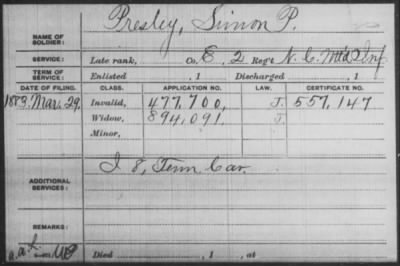 Presley, Simon P.
NAME OF SOLDIER:
SERVICE: Late rank, Co. E, 2 Reg't N. C. Mt'd Inf.
TERM OF SERVICE: Enlisted , 1 Discharged , 1
DATE OF FILING. CLASS. APPLICATION NO. LAW. CERTIFICATE NO.
1883, Mar. 29. Invalid, 477,700, J. 557,147
Widow, 894,091, J.
Minor,
I 8, Tenn Cav.
ADDITIONAL SERVICES:
REMARKS:
Died , 1 , at